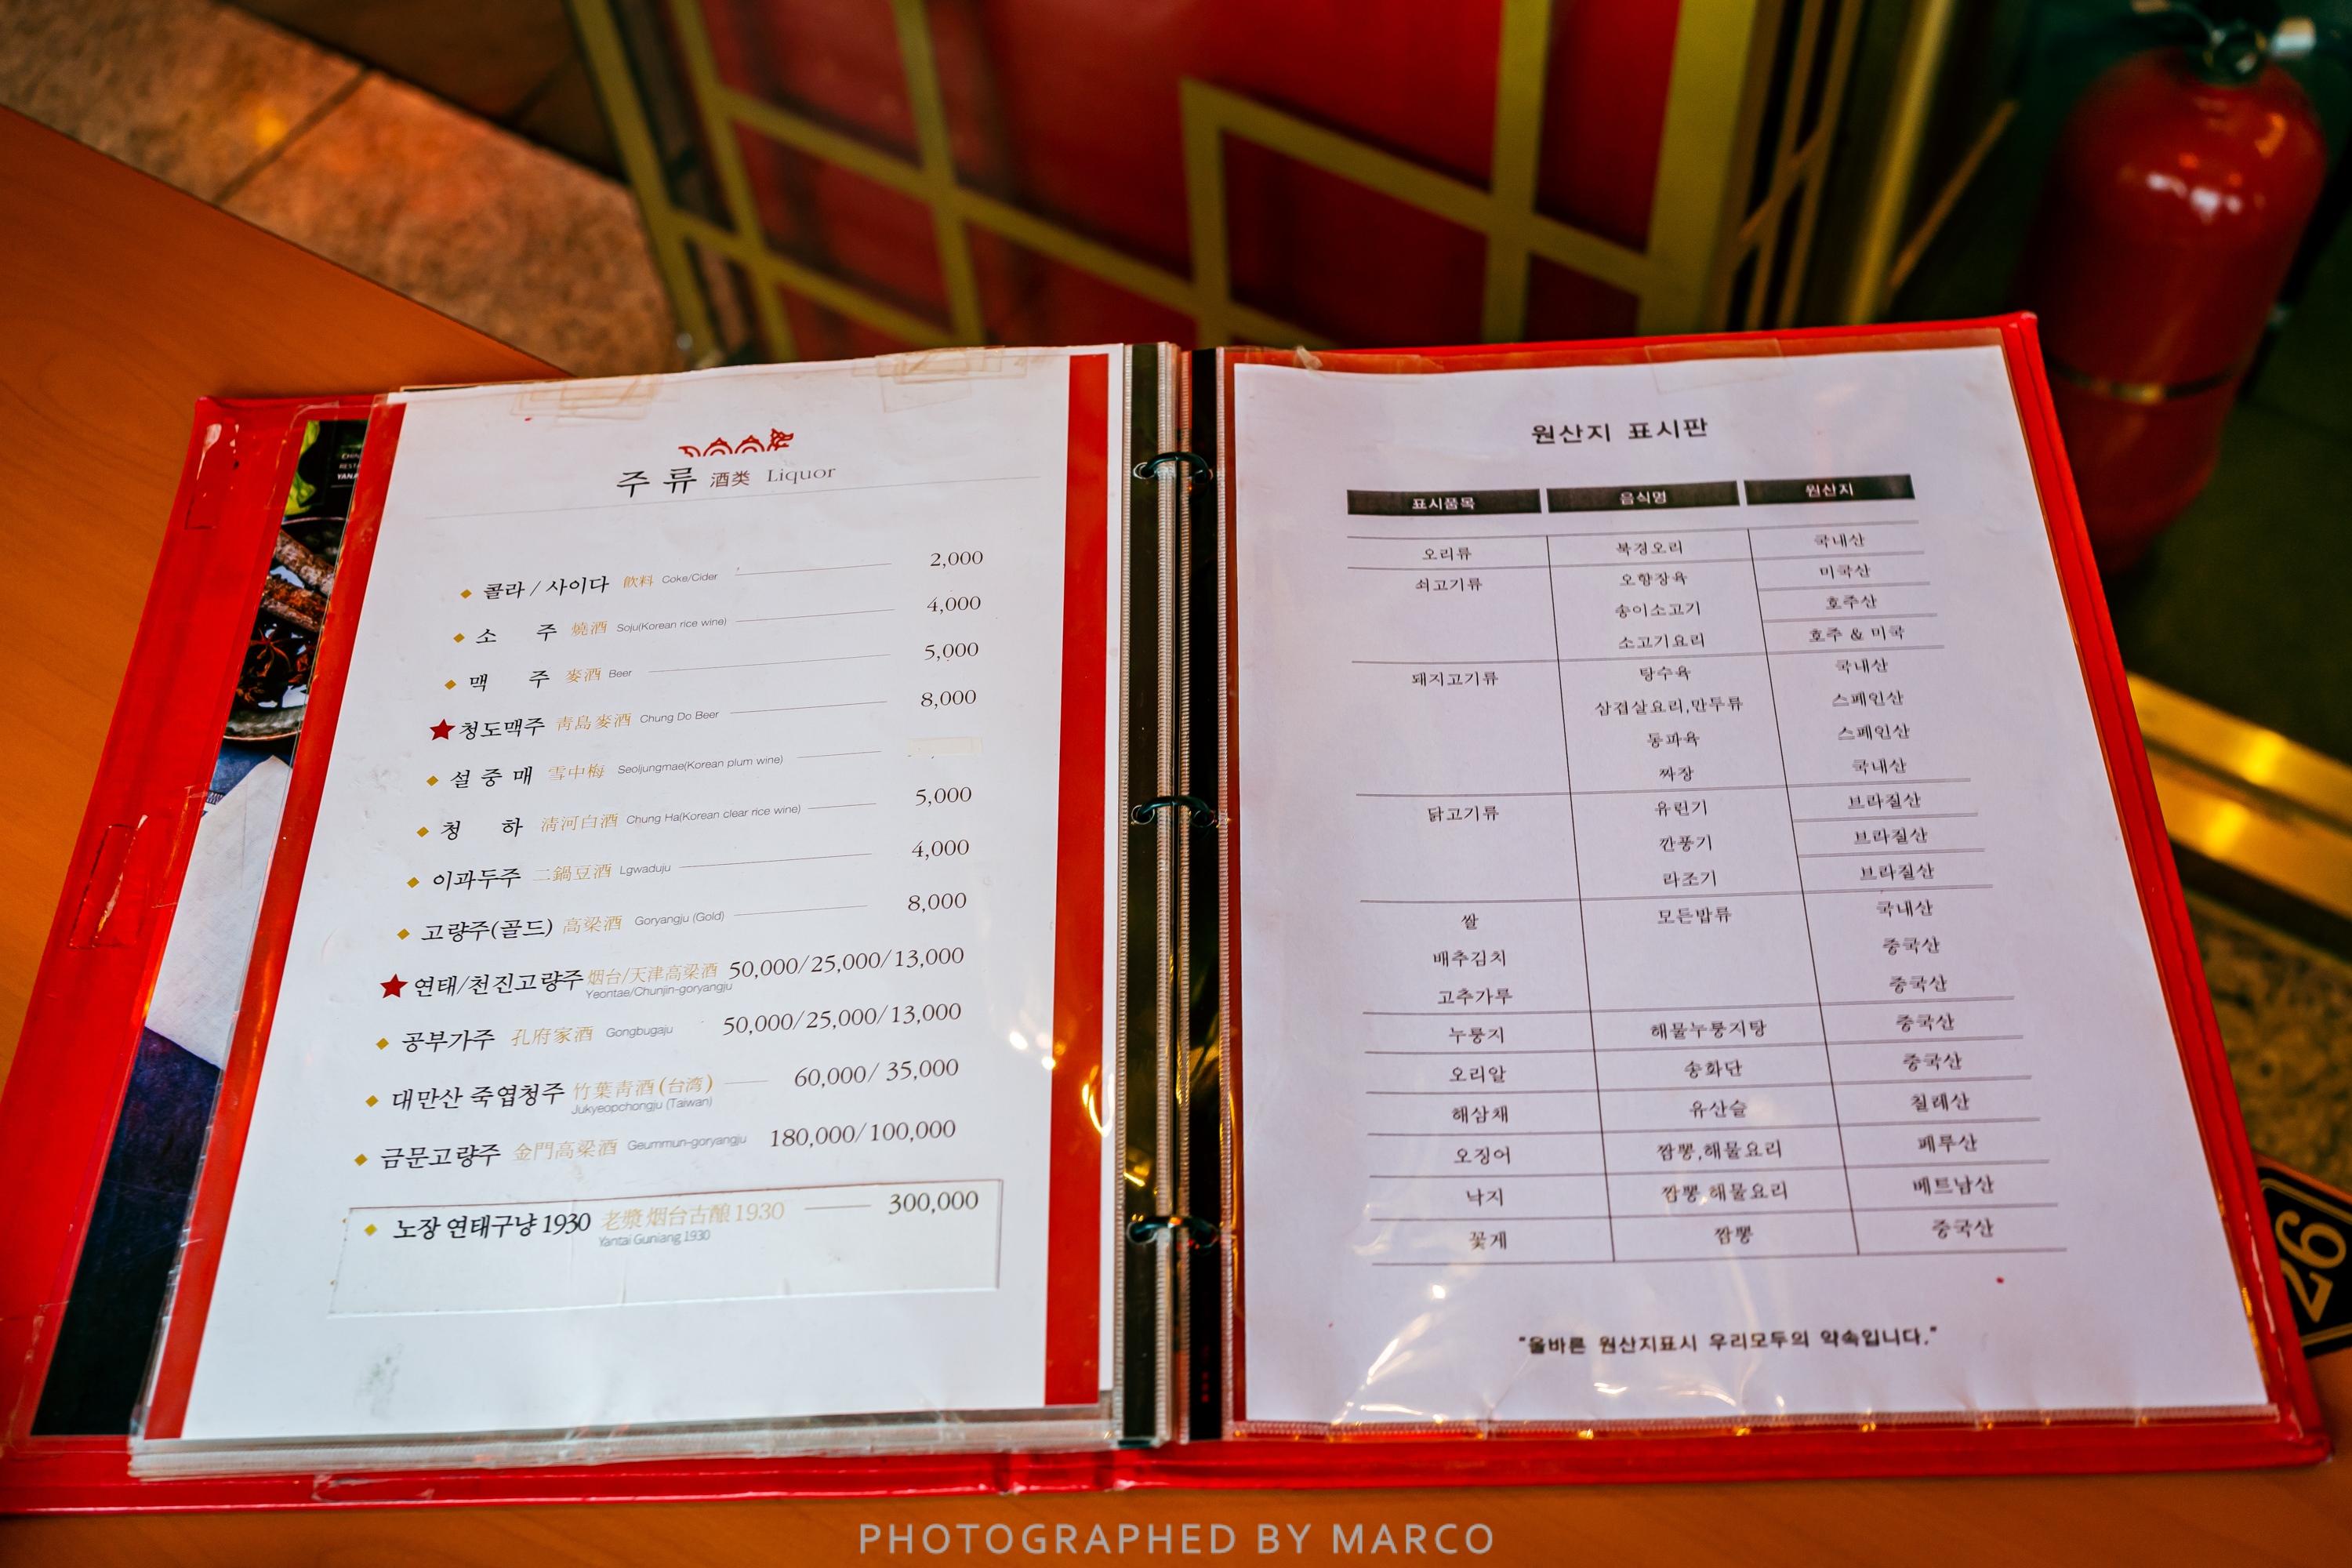 주 류 酒类 Liquor
콜라 / 사이다 飮料 Coke/Cider 2,000
소 주 燒酒 Soju(Korean rice wine) 4,000
맥 주 麥酒 Beer 5,000
청도맥주 靑島麥酒 Chung Do Beer 8,000
설 중 매 雪中梅 Seoljungmae(Korean plum wine)
청 하 淸河白酒 Chung Ha(Korean clear rice wine) 5,000
이과두주 二鍋豆酒 Lgwaduju 4,000
고량주(골드) 高粱酒 Goryangju (Gold) 8,000
연태/천진고량주 烟台/天津高粱酒 50,000/25,000/13,000
Yeontae/Chunjin-goryangju
공부가주 孔府家酒 Gongbugaju 50,000/25,000/13,000
대만산 죽엽청주 竹葉靑酒(台湾) 60,000/ 35,000
Jukyeopchongju (Taiwan)
금문고량주 金門高粱酒 Geummun-goryangju 180,000/100,000
노장 연태구냥 1930 老漿烟台古酿1930 300,000
Yantai Guniang 1930
원산지 표시판
표시품목 음식명 원산지
오리류 북경오리 국내산
쇠고기류 오향장육 미국산
송이소고기 호주산
소고기요리 호주 & 미국
돼지고기류 탕수육 국내산
삼겹살요리,만두류 스페인산
동파육 스페인산
짜장 국내산
닭고기류 유린기 브라질산
깐풍기 브라질산
라조기 브라질산
쌀 모든밥류 국내산
배추김치 중국산
고추가루 중국산
누룽지 해물누룽지탕 중국산
오리알 송화단 중국산
해삼채 유산슬 칠레산
오징어 짬뽕,해물요리 페루산
낙지 짬뽕,해물요리 베트남산
꽃게 짬뽕 중국산
"올바른 원산지표시 우리모두의 약속입니다."
26
PHOTOGRAPHED BY MARCO